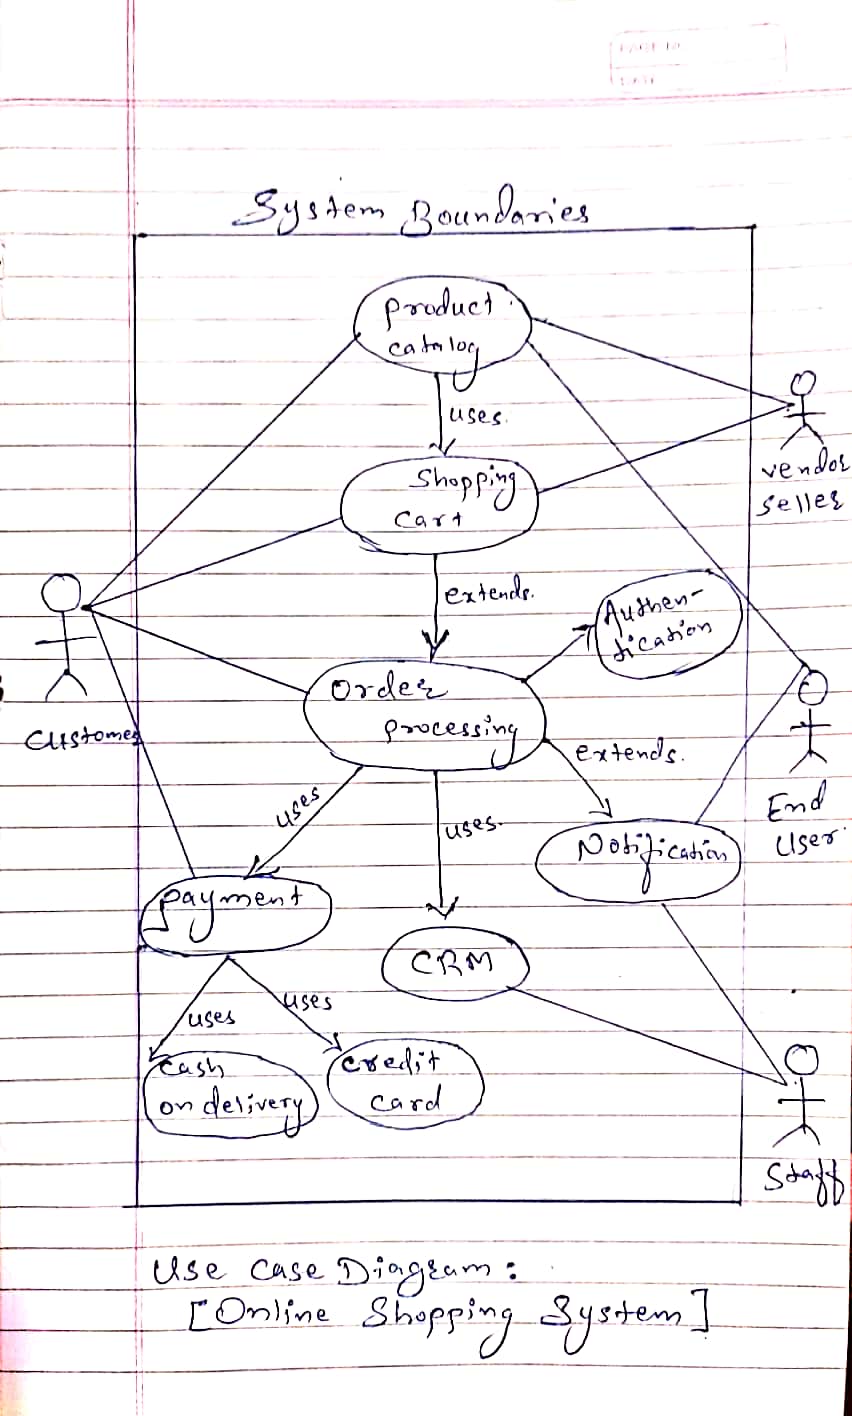 PAGE No.
DATE
System Boundaries
Product
catalog
uses.
Shopping
Cart
vendor
seller
extends.
Authen-
tication
Order
processing
Customer
extends.
uses
uses.
End
User
Notification
Payment
CRM
uses
uses
Cash
on delivery
credit
card
Staff
Use Case Diagram:
[Online Shopping System]